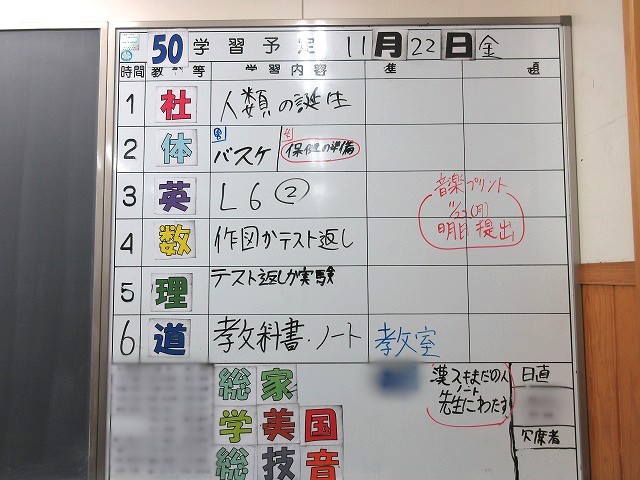 50 学習予定 11月22日金
時間 教 等 学習内容 準
1 社 人類の誕生
2 体 男 バスケ 女 保健の準備
3 英 L6 ②
4 数 作図かテスト返し
5 理 テスト返しか実験
6 道 教科書・ノート 教室
音楽プリント
(月)
明日 提出
総 家
学 美 国
総 技 音
漢スキまだの人
ノート
先生にわたす
日直
欠席者